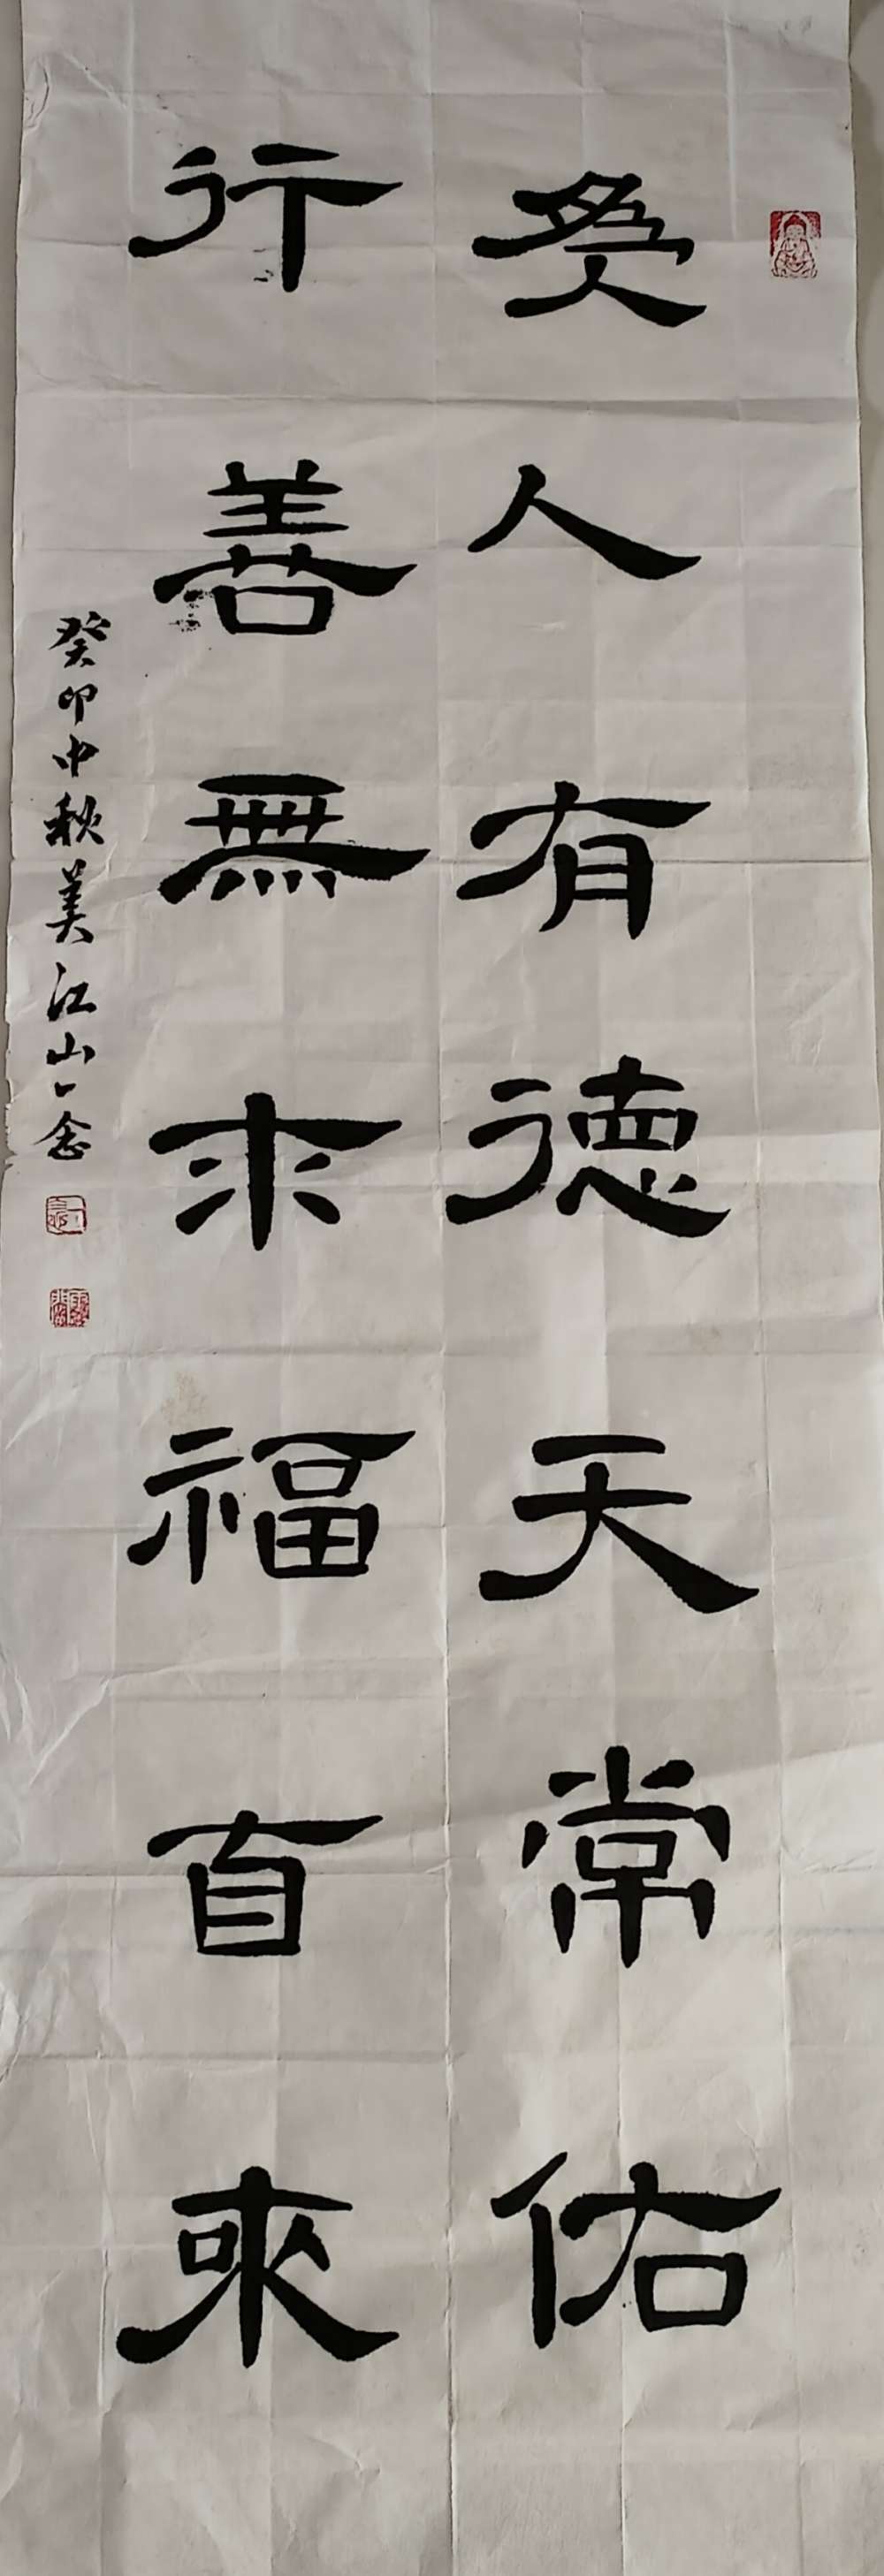 為人有德天常佑
行善無求福自來
癸卯中秋美江山一念